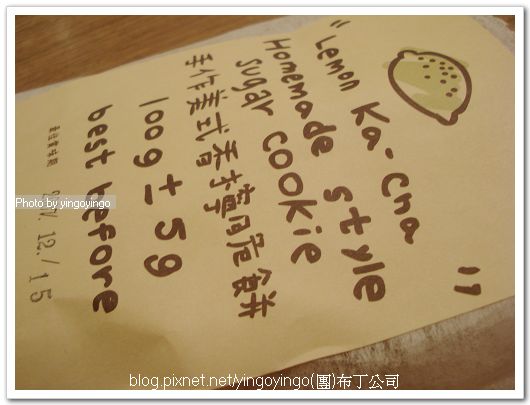 "Lemon Ka-Cha"
Homemade style
sugar cookie
手作美式香檸曲奇餅
100g ± 5g
best before
2007. 12. / 15
Photo by yingoyingo
blog.pixnet.net/yingoyingo(團)布丁公司